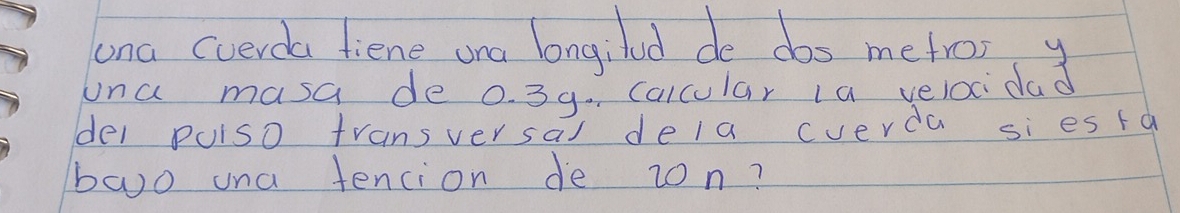 una cuerda tiene una longitud de dos metros y
una masa de 0.3g. calcular la velocidad
del pulso transversal de la cuerda si esta
bajo una tencion de 20 n?